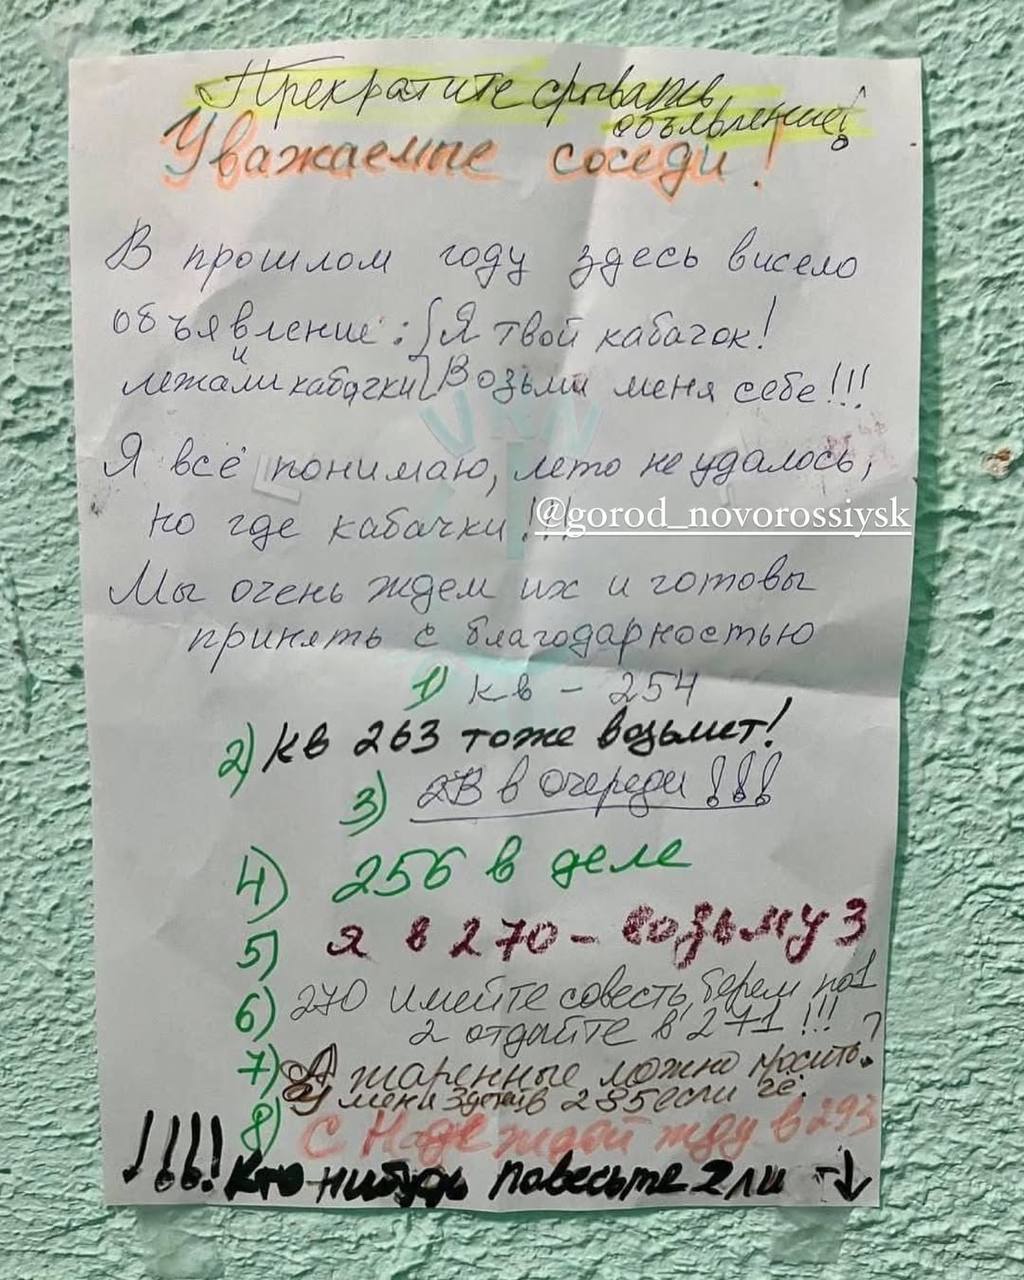 Прекратите срывать
объявление!
Уважаемые соседи!
В прошлом году здесь висело
объявление: Я твой кабачок!
и
лежали кабачки Возьми меня себе!!!
Я всё понимаю, лето не удалось,
но где кабачки!!!
@gorod_novorossiysk
Мы очень ждем их и готовы
принять с благодарностью
1) кв - 254
2) кв 263 тоже возьмет!
3) 2В в очереди!!!
4) 256 в деле
5) я в 270 - возьму 3
6) 270 имейте совесть, берем по 1
2 отдайте в 271!!!
7) А жаренные можно просить?
У меня в 285 если че.
8) С Надеждой жду в 293
!!!! Кто нибудь повесьте 2 ли